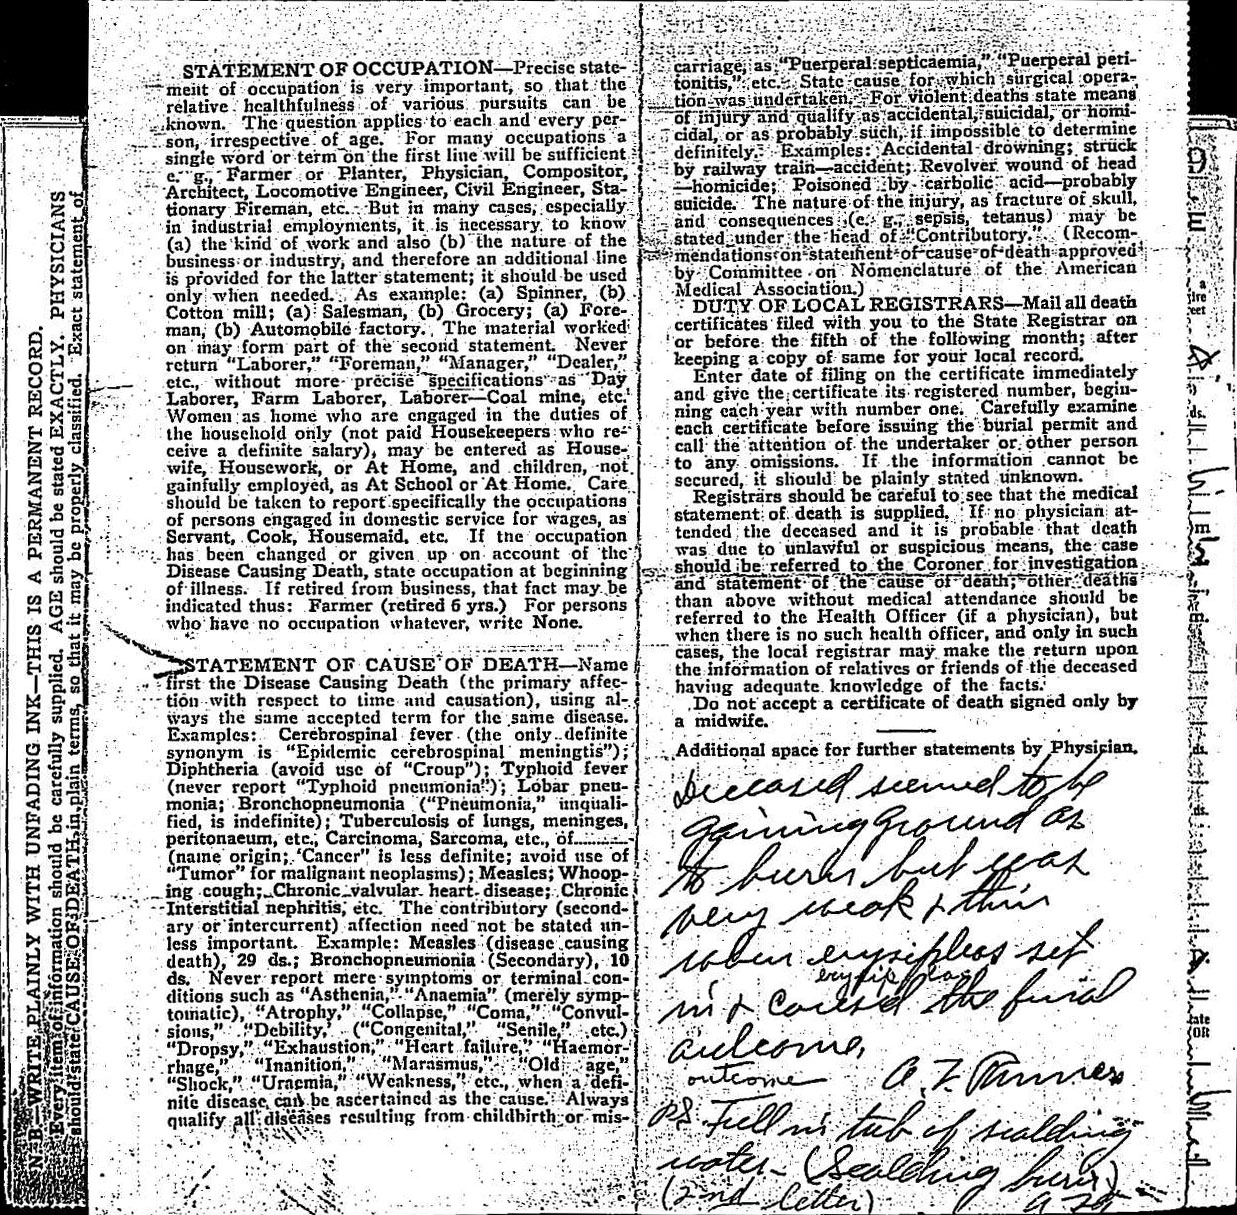 N. B.—WRITE PLAINLY WITH UNFADING INK—THIS IS A PERMANENT RECORD.
Every item of information should be carefully supplied. AGE should be stated EXACTLY. PHYSICIANS
should state CAUSE OF DEATH in plain terms, so that it may be properly classified. Exact statement of
STATEMENT OF OCCUPATION—Precise state-
ment of occupation is very important, so that the
relative healthfulness of various pursuits can be
known. The question applies to each and every per-
son, irrespective of age. For many occupations a
single word or term on the first line will be sufficient
e. g., Farmer or Planter, Physician, Compositor,
Architect, Locomotive Engineer, Civil Engineer, Sta-
tionary Fireman, etc. But in many cases, especially
in industrial employments, it is necessary to know
(a) the kind of work and also (b) the nature of the
business or industry, and therefore an additional line
is provided for the latter statement; it should be used
only when needed. As example: (a) Spinner, (b)
Cotton mill; (a) Salesman, (b) Grocery; (a) Fore-
man, (b) Automobile factory. The material worked
on may form part of the second statement. Never
return "Laborer," "Foreman," "Manager," "Dealer,"
etc., without more precise specifications as Day
Laborer, Farm Laborer, Laborer—Coal mine, etc.
Women as home who are engaged in the duties of
the household only (not paid Housekeepers who re-
ceive a definite salary), may be entered as House-
wife, Housework, or At Home, and children, not
gainfully employed, as At School or At Home. Care
should be taken to report specifically the occupations
of persons engaged in domestic service for wages, as
Servant, Cook, Housemaid, etc. If the occupation
has been changed or given up on account of the
Disease Causing Death, state occupation at beginning
of illness. If retired from business, that fact may be
indicated thus: Farmer (retired 6 yrs.) For persons
who have no occupation whatever, write None.
STATEMENT OF CAUSE OF DEATH—Name
first the Disease Causing Death (the primary affec-
tion with respect to time and causation), using al-
ways the same accepted term for the same disease.
Examples: Cerebrospinal fever (the only definite
synonym is "Epidemic cerebrospinal meningtis");
Diphtheria (avoid use of "Croup"); Typhoid fever
(never report "Typhoid pneumonia"); Lobar pneu-
monia; Bronchopneumonia ("Pneumonia," unquali-
fied, is indefinite); Tuberculosis of lungs, meninges,
peritonaeum, etc., Carcinoma, Sarcoma, etc., of...........
(name origin; 'Cancer" is less definite; avoid use of
"Tumor" for malignant neoplasms); Measles; Whoop-
ing cough; Chronic valvular heart disease; Chronic
Interstitial nephritis, etc. The contributory (second-
ary or intercurrent) affection need not be stated un-
less important. Example: Measles (disease causing
death), 29 ds.; Bronchopneumonia (Secondary), 10
ds. Never report mere symptoms or terminal con-
ditions such as "Asthenia," "Anaemia" (merely symp-
tomatic), "Atrophy," "Collapse," "Coma," "Convul-
sions," "Debility," ("Congenital," "Senile," etc.)
"Dropsy," "Exhaustion," "Heart failure," "Haemor-
rhage," "Inanition," "Marasmus," "Old age,"
"Shock," "Uraemia," "Weakness," etc., when a defi-
nite disease can be ascertained as the cause. Always
qualify all diseases resulting from childbirth or mis-
carriage, as "Puerperal septicaemia," "Puerperal peri-
tonitis," etc. State cause for which surgical opera-
tion was undertaken. For violent deaths state means
of injury and qualify as accidental, suicidal, or homi-
cidal, or as probably such, if impossible to determine
definitely. Examples: Accidental drowning; struck
by railway train—accident; Revolver wound of head
—homicide; Poisoned by carbolic acid—probably
suicide. The nature of the injury, as fracture of skull,
and consequences (e. g., sepsis, tetanus) may be
stated under the head of "Contributory." (Recom-
mendations on statement of cause of death approved
by Committee on Nomenclature of the American
Medical Association.)
DUTY OF LOCAL REGISTRARS—Mail all death
certificates filed with you to the State Registrar on
or before the fifth of the following month; after
keeping a copy of same for your local record.
Enter date of filing on the certificate immediately
and give the certificate its registered number, begin-
ning each year with number one. Carefully examine
each certificate before issuing the burial permit and
call the attention of the undertaker or other person
to any omissions. If the information cannot be
secured, it should be plainly stated unknown.
Registrars should be careful to see that the medical
statement of death is supplied. If no physician at-
tended the deceased and it is probable that death
was due to unlawful or suspicious means, the case
should be referred to the Coroner for investigation
and statement of the cause of death; other deaths
than above without medical attendance should be
referred to the Health Officer (if a physician), but
when there is no such health officer, and only in such
cases, the local registrar may make the return upon
the information of relatives or friends of the deceased
having adequate knowledge of the facts.
Do not accept a certificate of death signed only by
a midwife.
Additional space for further statements by Physician.
Deceased seemed to be
gaining ground as
to burns but was
very weak & thin
when erysipleas set
erysipelas
in & caused the final
outcome,
outcome
PS Fell in tub of scalding
water - (Scalding burns)
(2nd letter)